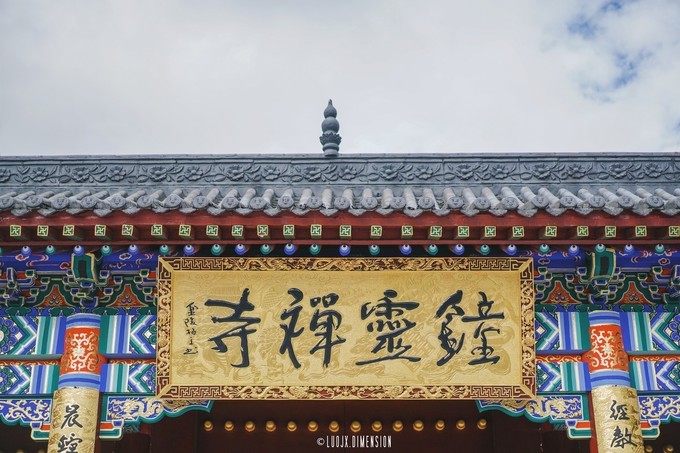 鐘靈禪寺
經
晨鐘
© LUOJX.DIMENSION